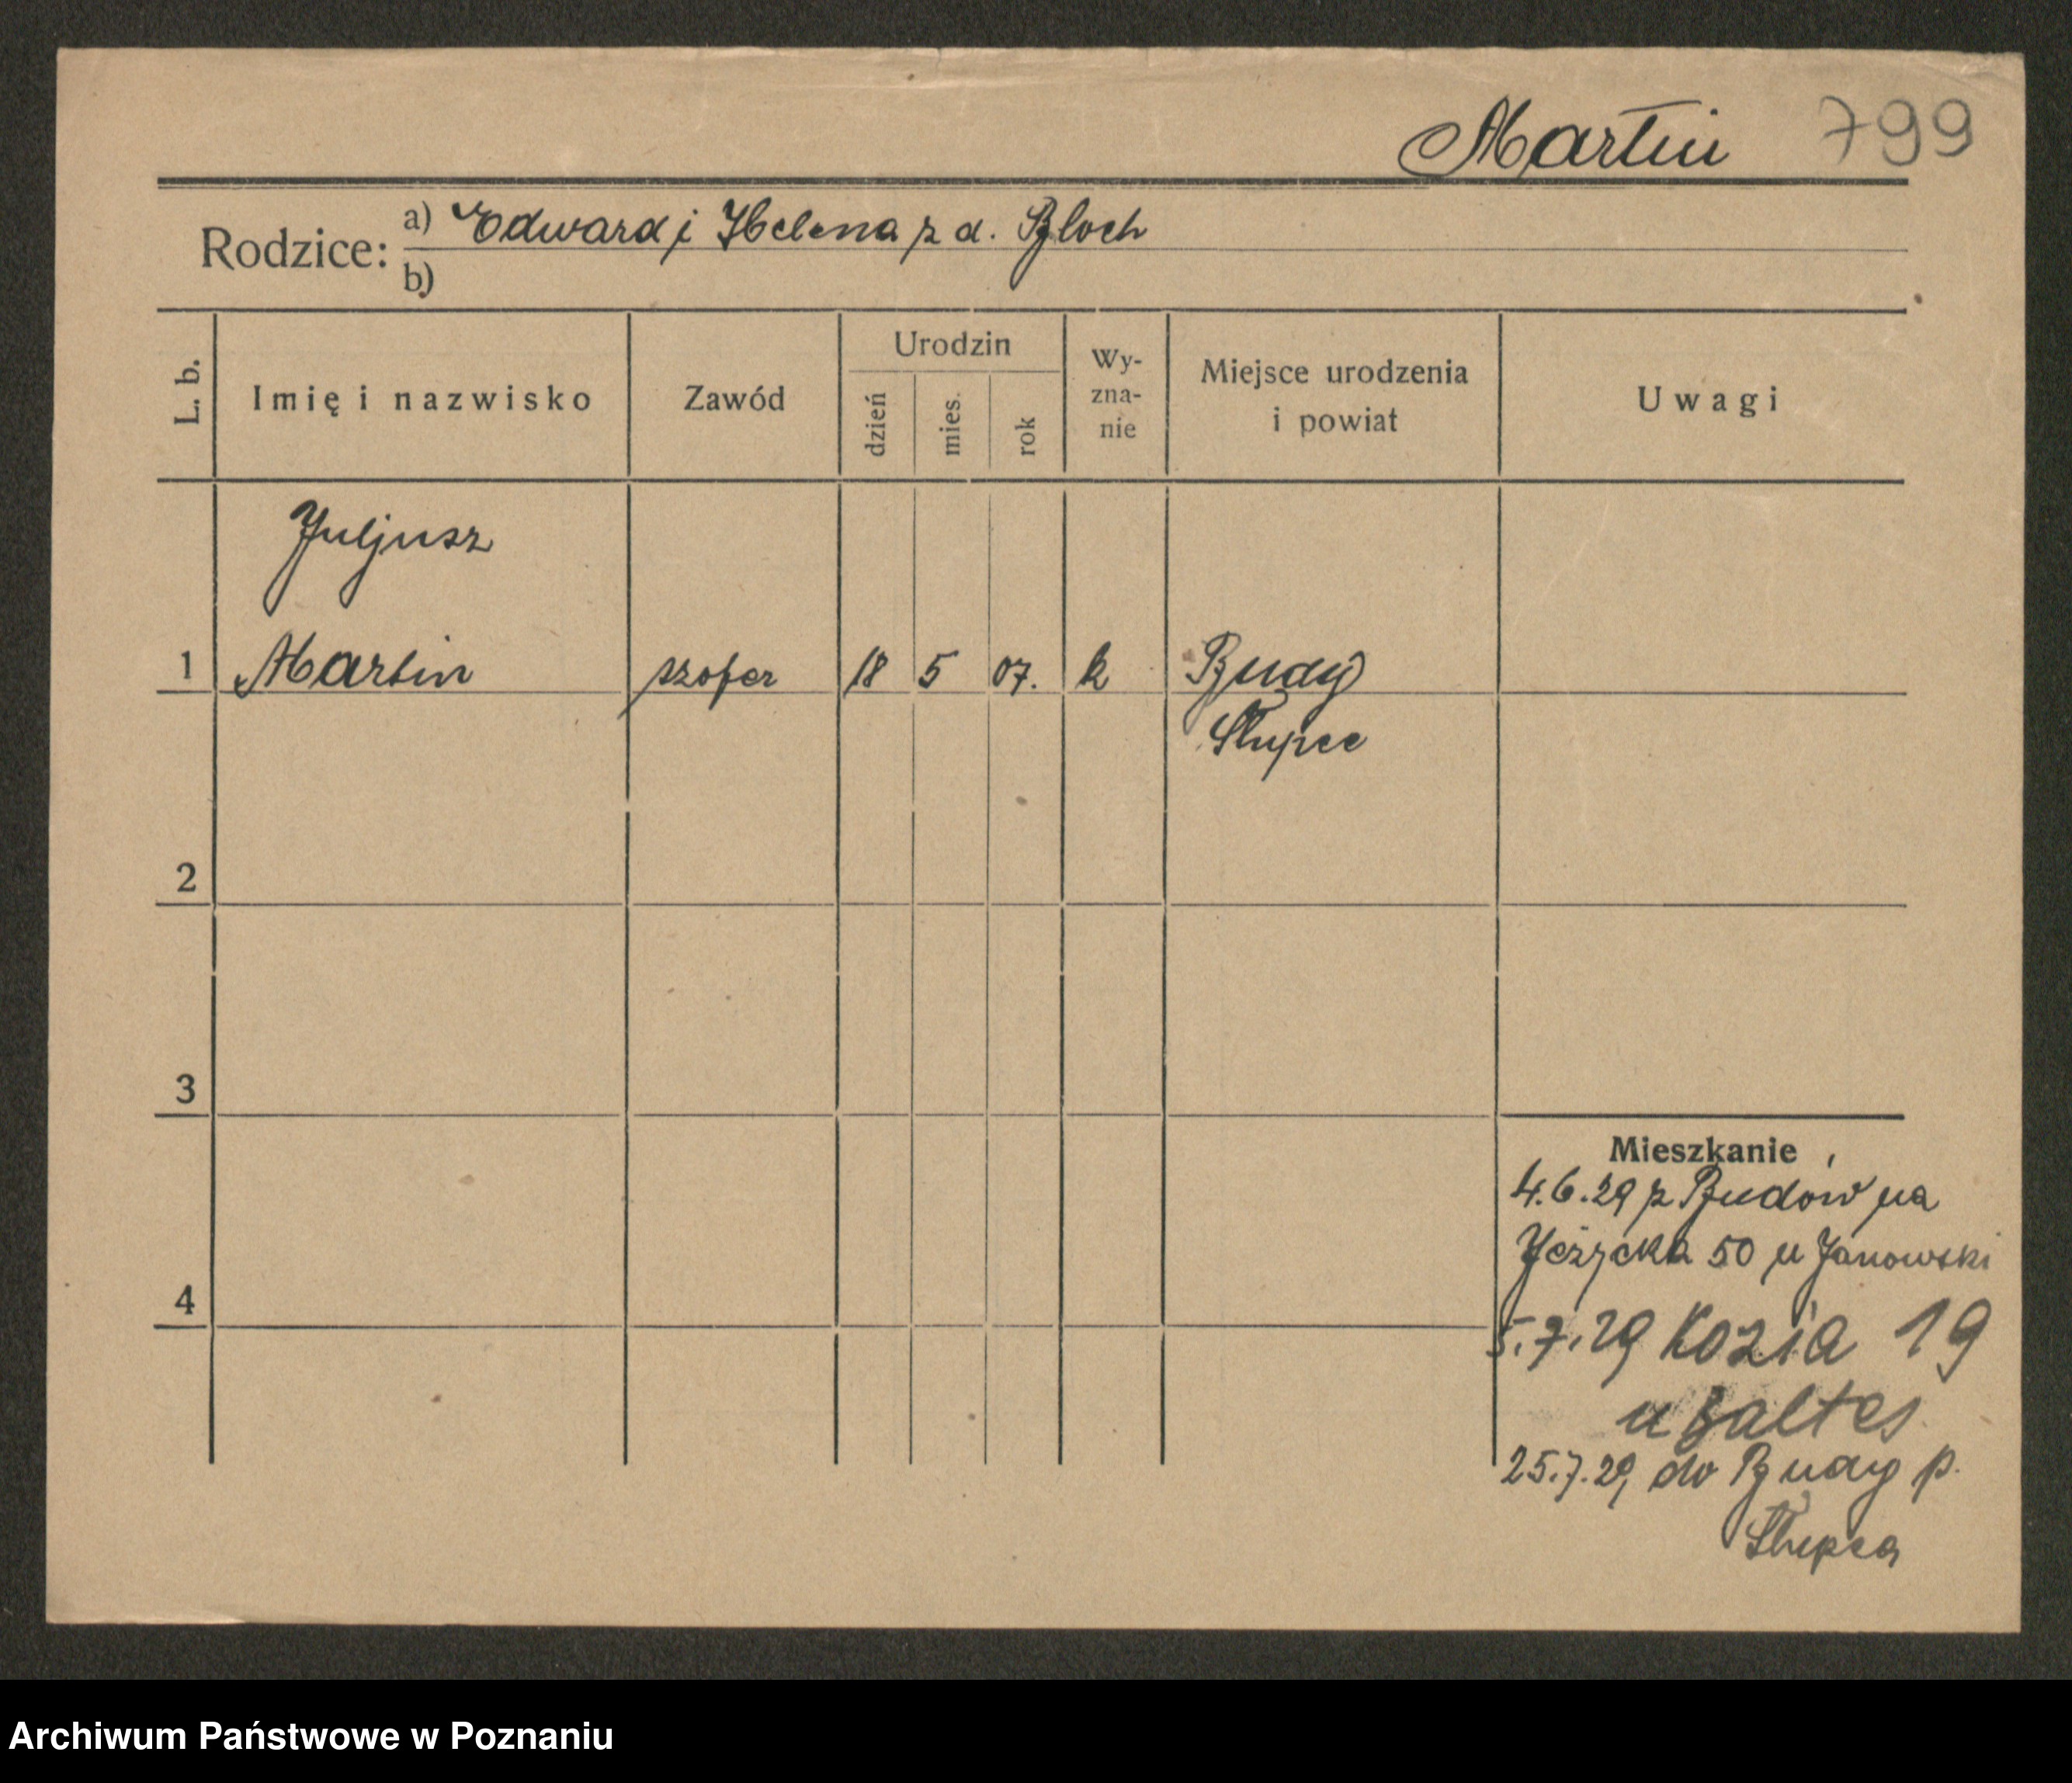 Martin 799
Rodzice: a) Edward i Helena z d. Bloch
b)
L. b. Imię i nazwisko Zawód Urodzin dzień mies. rok Wy-zna-nie Miejsce urodzenia i powiat Uwagi
Juljusz
1 Martin szofer 18 5 07. k Budy
Słupce
2
3
Mieszkanie
4.6.29 z Budów na
Jeżycka 50 u Janowski
4
5.7.29 Kozia 19
u Baltes
25.7.29 do Budy p.
Słupca
Archiwum Państwowe w Poznaniu